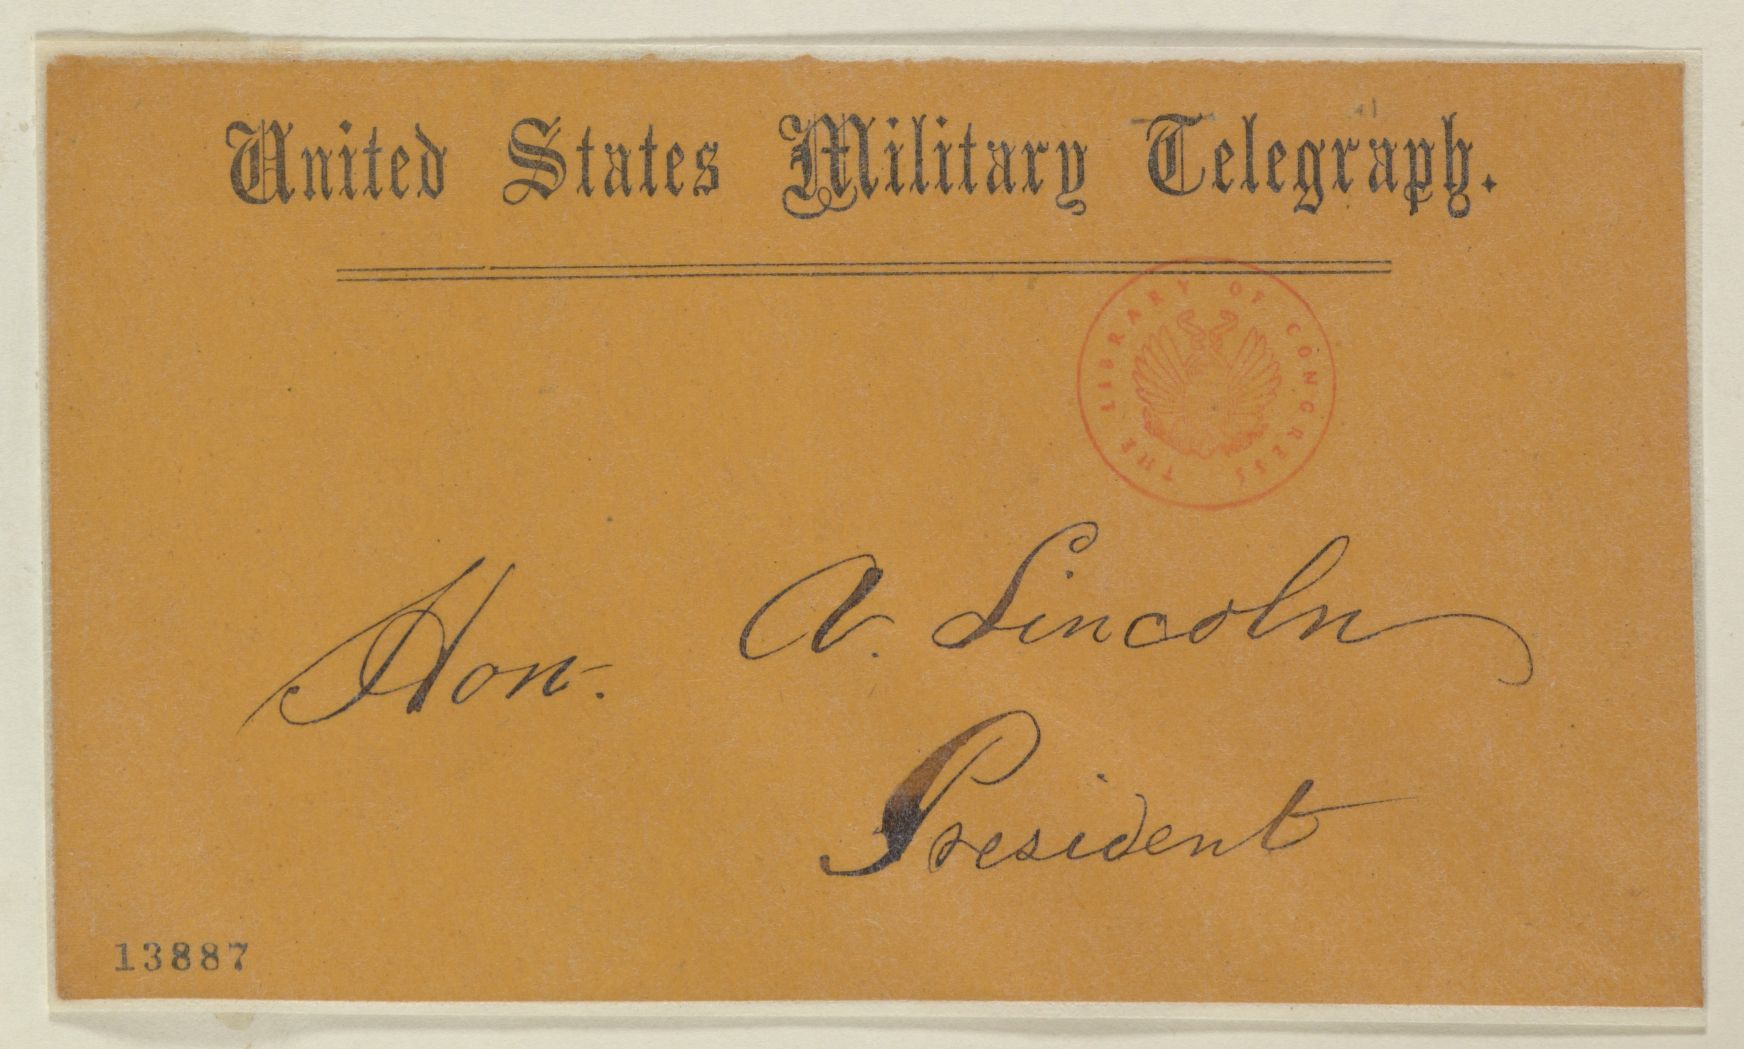 United States Military Telegraph.
THE LIBRARY OF CONGRESS
Hon. A. Lincoln
President
13887